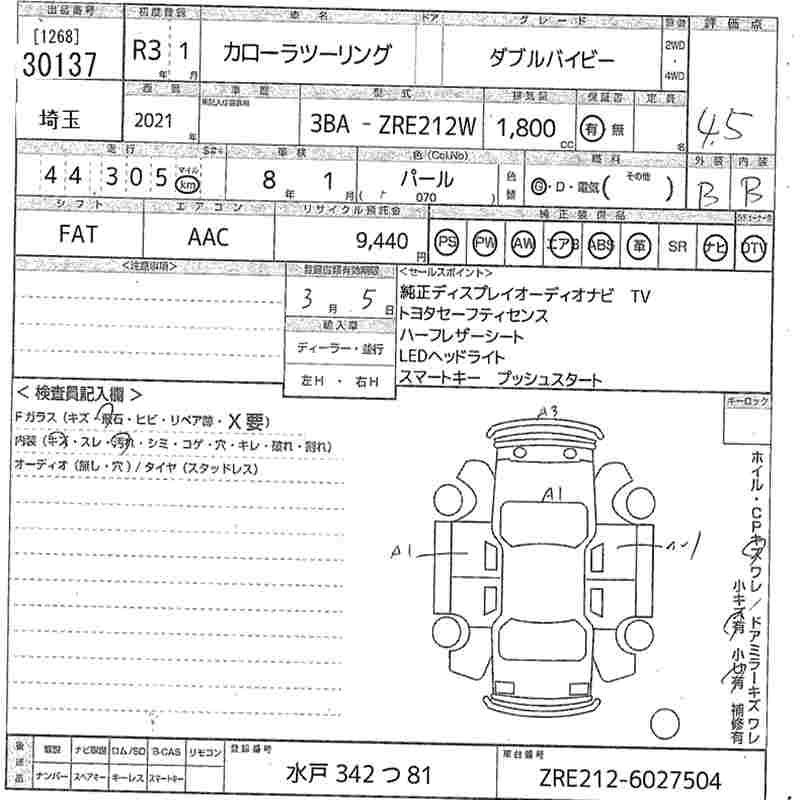 出品番号 初度登録 車名 ドア グレード 評価点
[1268]
30137 R3 1 カローラツーリング ダブルバイビー 2WD・4WD
年 月
西暦 車歴 型式 排気量 保証書 定員
埼玉 2021 年 3BA - ZRE212W 1,800 CC 有 無 名 4.5
走行 車検 色(Col.No) 燃料 外装 内装
44305 マイル km 8年 1月 パール 色替 G・D・電気( その他 ) B B
( 070 )
シフト エアコン リサイクル預託金 純正装備品
FAT AAC 9,440円 PS PW AW エアB ABS 革 SR ナビ DTV
<注意事項> 登録書類有効期限 <セールスポイント>
3月 5日
純正ディスプレイオーディオナビ TV
トヨタセーフティセンス
輸入車
ハーフレザーシート
ディーラー・並行
LEDヘッドライト
左H ・ 右H
スマートキー プッシュスタート
< 検査員記入欄 >
Fガラス (キズ・飛石・ヒビ・リペア跡・X要)
内装 (キズ・スレ・汚れ・シミ・コゲ・穴・キレ・破れ・割れ)
オーディオ (無し・穴) / タイヤ (スタッドレス)
キーロック
A3
A1
A1
ホイル・CPキズワレ/ドアミラーキズワレ
小キズ有 小凹有 補修有
後送品 取説 ナビ取説 ロム/SD B-CAS リモコン 登録番号 車台番号
ナンバー スペアキー キーレス スマートキー 水戸 342 つ 81 ZRE212-6027504